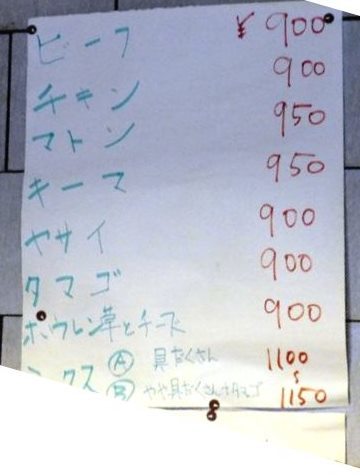 ビーフ ¥900
チキン 900
マトン 950
キーマ 950
ヤサイ 900
タマゴ 900
ホウレン草とチーズ 900
ミックス Ⓐ 具だくさん 1100
〜
Ⓑ やや具だくさん+タマゴ 1150